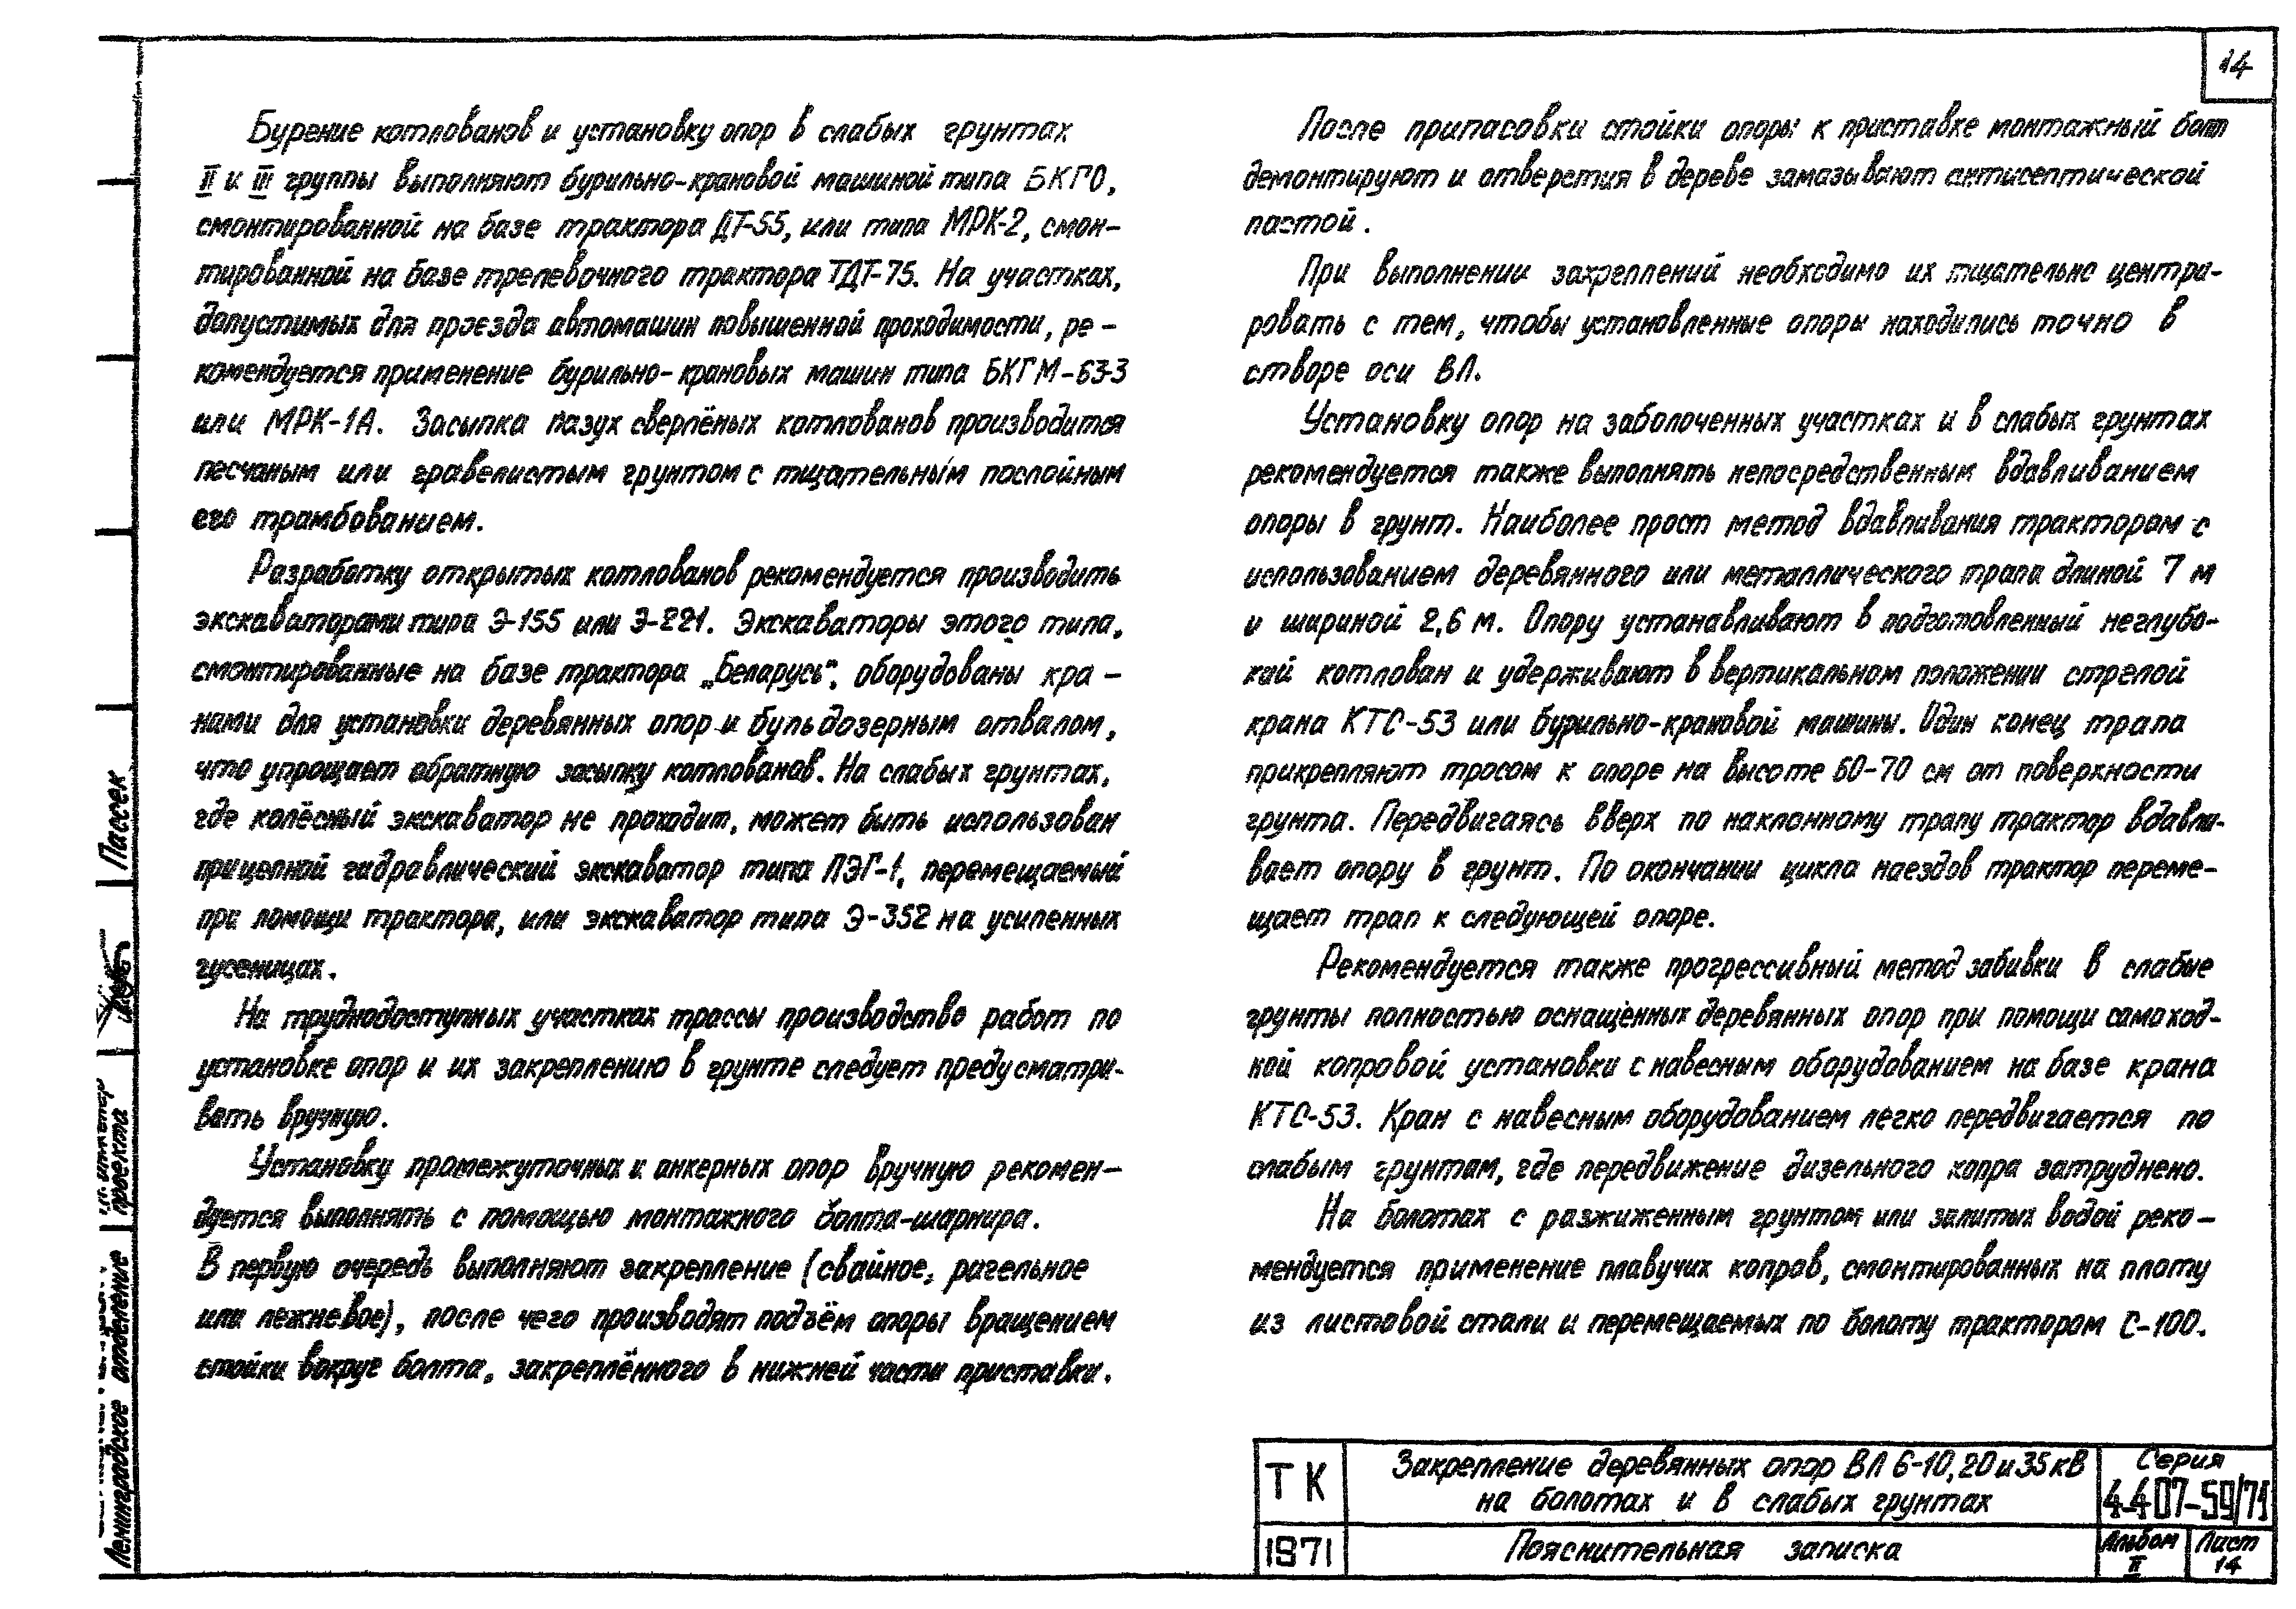 14
Бурение котлованов и установку опор в слабых грунтах
II и III группы выполняют бурильно-крановой машиной типа БКГО,
смонтированной на базе трактора ДТ-55, или типа МРК-2, смон-
тированной на базе трелевочного трактора ТДТ-75. На участках,
допустимых для проезда автомашин повышенной проходимости, ре-
комендуется применение бурильно-крановых машин типа БКГМ-63-3
или МРК-1А. Засыпка пазух сверлёных котлованов производится
песчаным или гравелистым грунтом с тщательным послойным
его трамбованием.
Разработку открытых котлованов рекомендуется производить
экскаваторами типа Э-155 или Э-221. Экскаваторы этого типа,
смонтированные на базе трактора „Беларусь“, оборудованы кра-
нами для установки деревянных опор и бульдозерным отвалом,
что упрощает обратную засыпку котлованов. На слабых грунтах,
где колёсный экскаватор не проходит, может быть использован
прицепной гидравлический экскаватор типа ПЭГ-1, перемещаемый
при помощи трактора, или экскаватор типа Э-352 на усиленных
гусеницах.
На труднодоступных участках трассы производство работ по
установке опор и их закреплению в грунте следует предусматри-
вать вручную.
Установку промежуточных и анкерных опор вручную рекомен-
дуется выполнять с помощью монтажного болта-шарнира.
В первую очередь выполняют закрепление (свайное, ригельное
или лежневое), после чего производят подъём опоры вращением
стойки вокруг болта, закреплённого в нижней части приставки.
После припасовки стойки опоры к приставке монтажный болт
демонтируют и отверстия в дереве замазывают антисептической
пастой.
При выполнении закреплений необходимо их тщательно центри-
ровать с тем, чтобы установленные опоры находились точно в
створе оси ВЛ.
Установку опор на заболоченных участках и в слабых грунтах
рекомендуется также выполнять непосредственным вдавливанием
опоры в грунт. Наиболее прост метод вдавливания трактором с
использованием деревянного или металлического трапа длиной 7 м
и шириной 2,6 м. Опору устанавливают в подготовленный неглубо-
кий котлован и удерживают в вертикальном положении стрелой
крана КТС-53 или бурильно-крановой машины. Один конец трапа
прикрепляют тросом к опоре на высоте 60-70 см от поверхности
грунта. Передвигаясь вверх по наклонному трапу трактор вдавли-
вает опору в грунт. По окончании цикла наездов трактор переме-
щает трап к следующей опоре.
Рекомендуется также прогрессивный метод забивки в слабые
грунты полностью оснащенных деревянных опор при помощи самоход-
ной копровой установки с навесным оборудованием на базе крана
КТС-53. Кран с навесным оборудованием легко передвигается по
слабым грунтам, где передвижение дизельного копра затруднено.
На болотах с разжиженным грунтом или залитых водой реко-
мендуется применение плавучих копров, смонтированных на плоту
из листовой стали и перемещаемых по болоту трактором С-100.
ТК
1971
Закрепление деревянных опор ВЛ 6-10, 20 и 35 кВ
на болотах и в слабых грунтах
Пояснительная записка
Серия
4.407-59/71
Альбом
II
Лист
14
Пассек
проекта
Ленинградское отделение